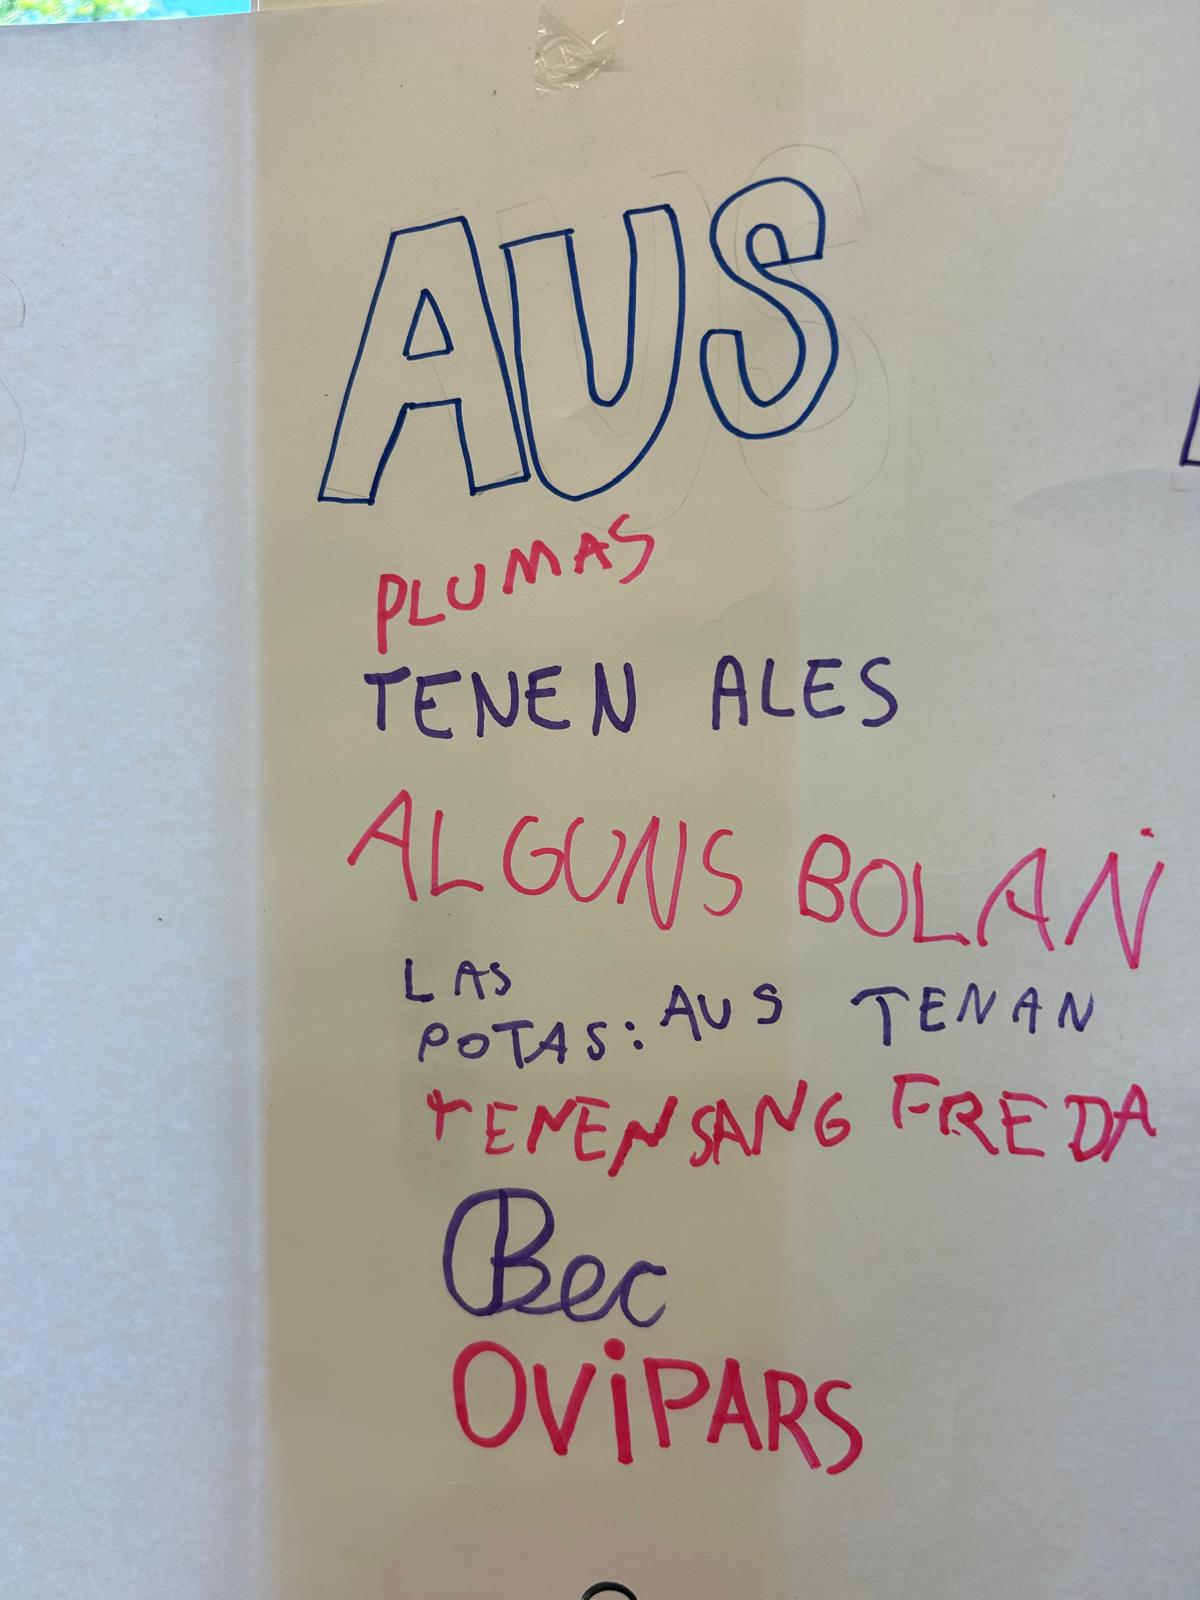 AUS
PLUMAS
TENEN ALES
ALGUNS BOLAN
LAS
POTAS: AUS TENAN
TENEN SANG FREDA
Bec
OViPARS